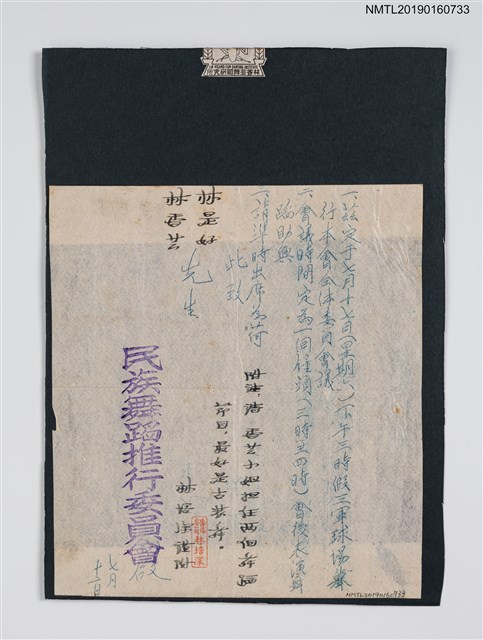 NMTL20190160733
林香芸舞蹈研究所
一、茲定于七月十七日(星期六)下午三時假三軍球場舉
行本會全体委員會議
一、會議時間定為一個鐘頭(三時至四時)會後太演舞
蹈助興
一、請準時出席為荷
此致
林是好
林香芸
先生
附註：請香芸小姐担任两個舞蹈
節目，最好是古裝舞。
林培注謹附
民族舞蹈推行委員會
啟
七月
十二日
NMTL20190160733